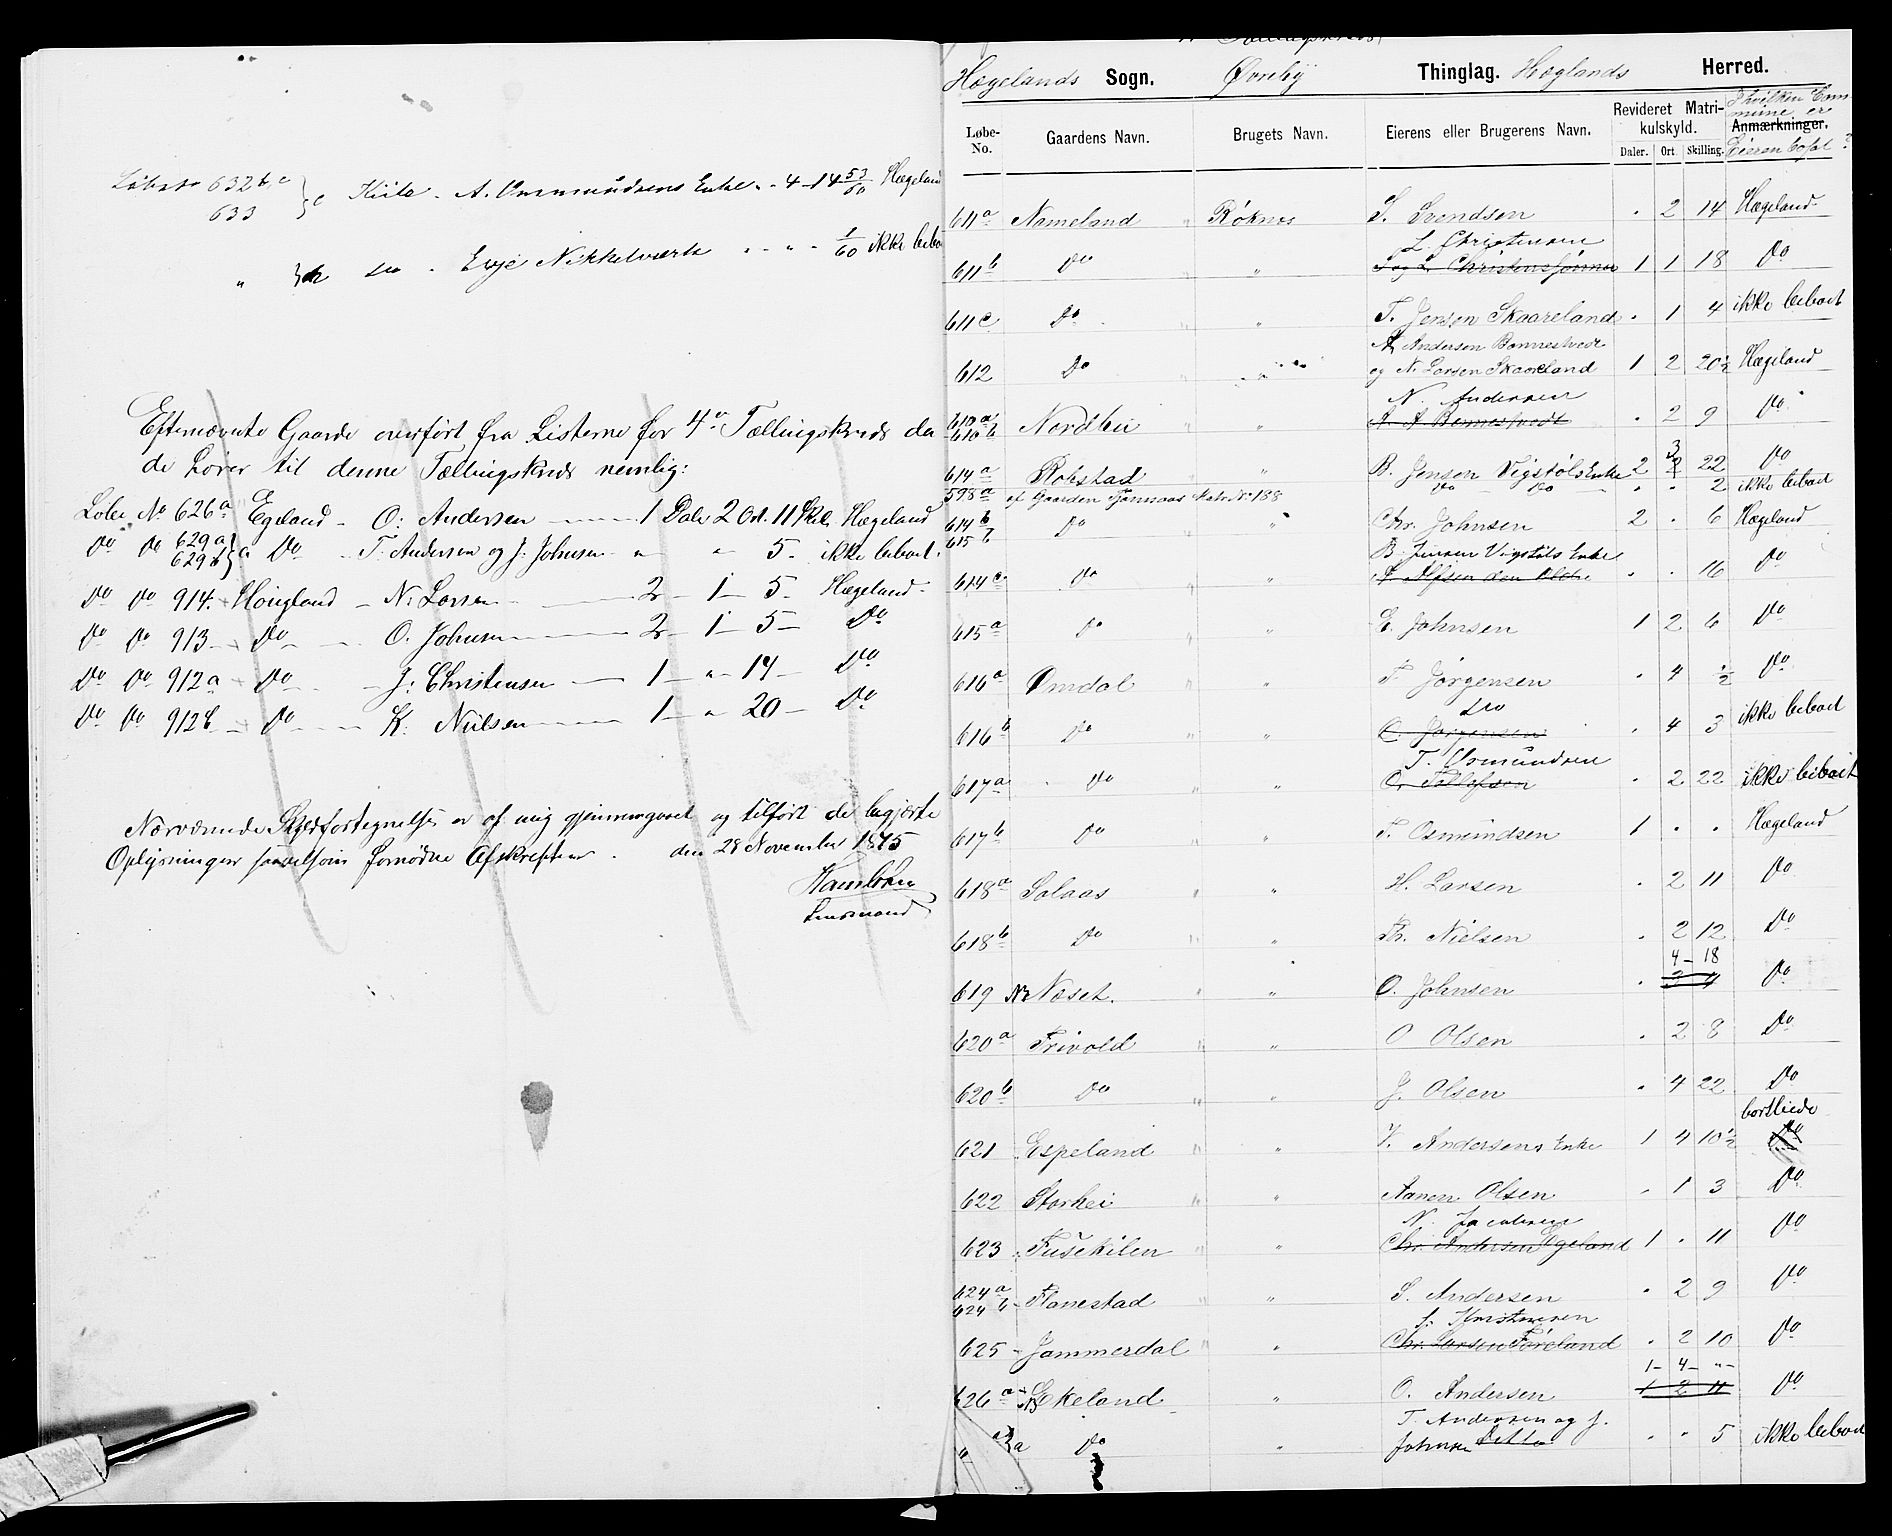 Løbeno 632 b,c } c Kiile - A. Osmundsens Enke " - 4 - 14 53/60 Hægeland
633
" do - Evje Nikkelværk " - " - 1/60 ikke bebo
Efternævnte Gaarde overført fra Listerne for 4de Tællingskreds da
de hører til denne Tællingskreds nemlig:
Løbe No 626a Egeland - O: Andersen 1 Daler 2 Ort. 11 Skil. Hægeland
Do Do 629a 629b } a Do - T: Andersen og J: Johnsen " " 5 - ikke beboet.
Do Do 914. Hougland - N: Larsen 2 - 1 - 5 - Hægeland -
Do Do 913 - Do - O. Johnsen 2 - 1 - 5 - Do
Do Do 912a - Do - J: Christensen - 1 - " - 14 - Do
Do Do 912b - Do - K. Nielsen 1 - " - 20 - Do
Nærværende Skyldfortegnelse er af mig gjennemgaaet og tilført de begjærte
Oplysninger saavelsom fornødne Afskrifter. den 28 November 1875
Lensmand
Tællingskreds
Hægelands Sogn. Øvreby Thinglag. Hæglands Herred.
Løbe-No. Gaardens Navn. Brugets Navn. Eierens eller Brugerens Navn. Revideret Matrikulskyld. Daler. Ort. Skilling. Anmærkninger. I hvilken Commune er Eieren bosat?
611a Nameland " Røknes S. Svendsen . 2 14 Hægeland
L. Christensen
611b Do " T og L Christenssønner 1 1 18 Do
611c Do " " T. Jensen Skaareland . 1 4 ikke beboet
A Andersen Bonnestvedt
612 Do " og N. Larsen Skaareland 1 2 20½ Hægeland
N. Andersen
610a 610b Nordhei " " A A Bonnestvedt . 2 9 Do
614a Rokstad " B. Jensen Vigstøls Enke 2 3 2 22 Do
598a af Gaarden Tønnaas Matr No 188 Do Do . . 2 ikke beboet
614b 615b Do " Chr. Johnsen 2 . 6 Hægeland
B. Jensen Vigstøls Enke
614c Do " " . . 16 Do
615a Do " " E. Johnsen 1 2 6 Do
616a Omdal " " T. Jørgensen . 4 ½ Do
do
616b Do " " O. Jørgensen . 4 3 ikke beboet
T. Osmundsen
617a Do " " O. Tollefsen . 2 22 ikke beboet
617b Do " " T. Osmundsen 1 . . Hægeland
618a Solaas " " H. Larsen . 2 11 Do
618b Do " " Th. Nielsen . 2 12 Do
4 - 18
619 Næset. " " O. Johnsen . Do
620a Frivold " " O Olsen . 2 8 Do
620b Do " " J. Olsen . 4 22 Do
bortliede
621 Espeland " " T. Andersens Enke 1 4 10½ Do
622 Storhei " " Aanen Olsen . 1 3 Do
N. Jacobsen
623 Fusekilen " " Chr. Andersen Egeland 1 . 11 Do
624a 624b Flanestad " " S. Andersen . 2 9 Do
S. Kristensen
625 - Jammerdal " " Chr. Larsen Føreland . 2 10 Do
1 - 4 - " -
626a Ekeland " O. Andersen 1 2 11 Do
T. Andersen og J.
" a Do " Johnsen Ditto . . 5 ikke beboet